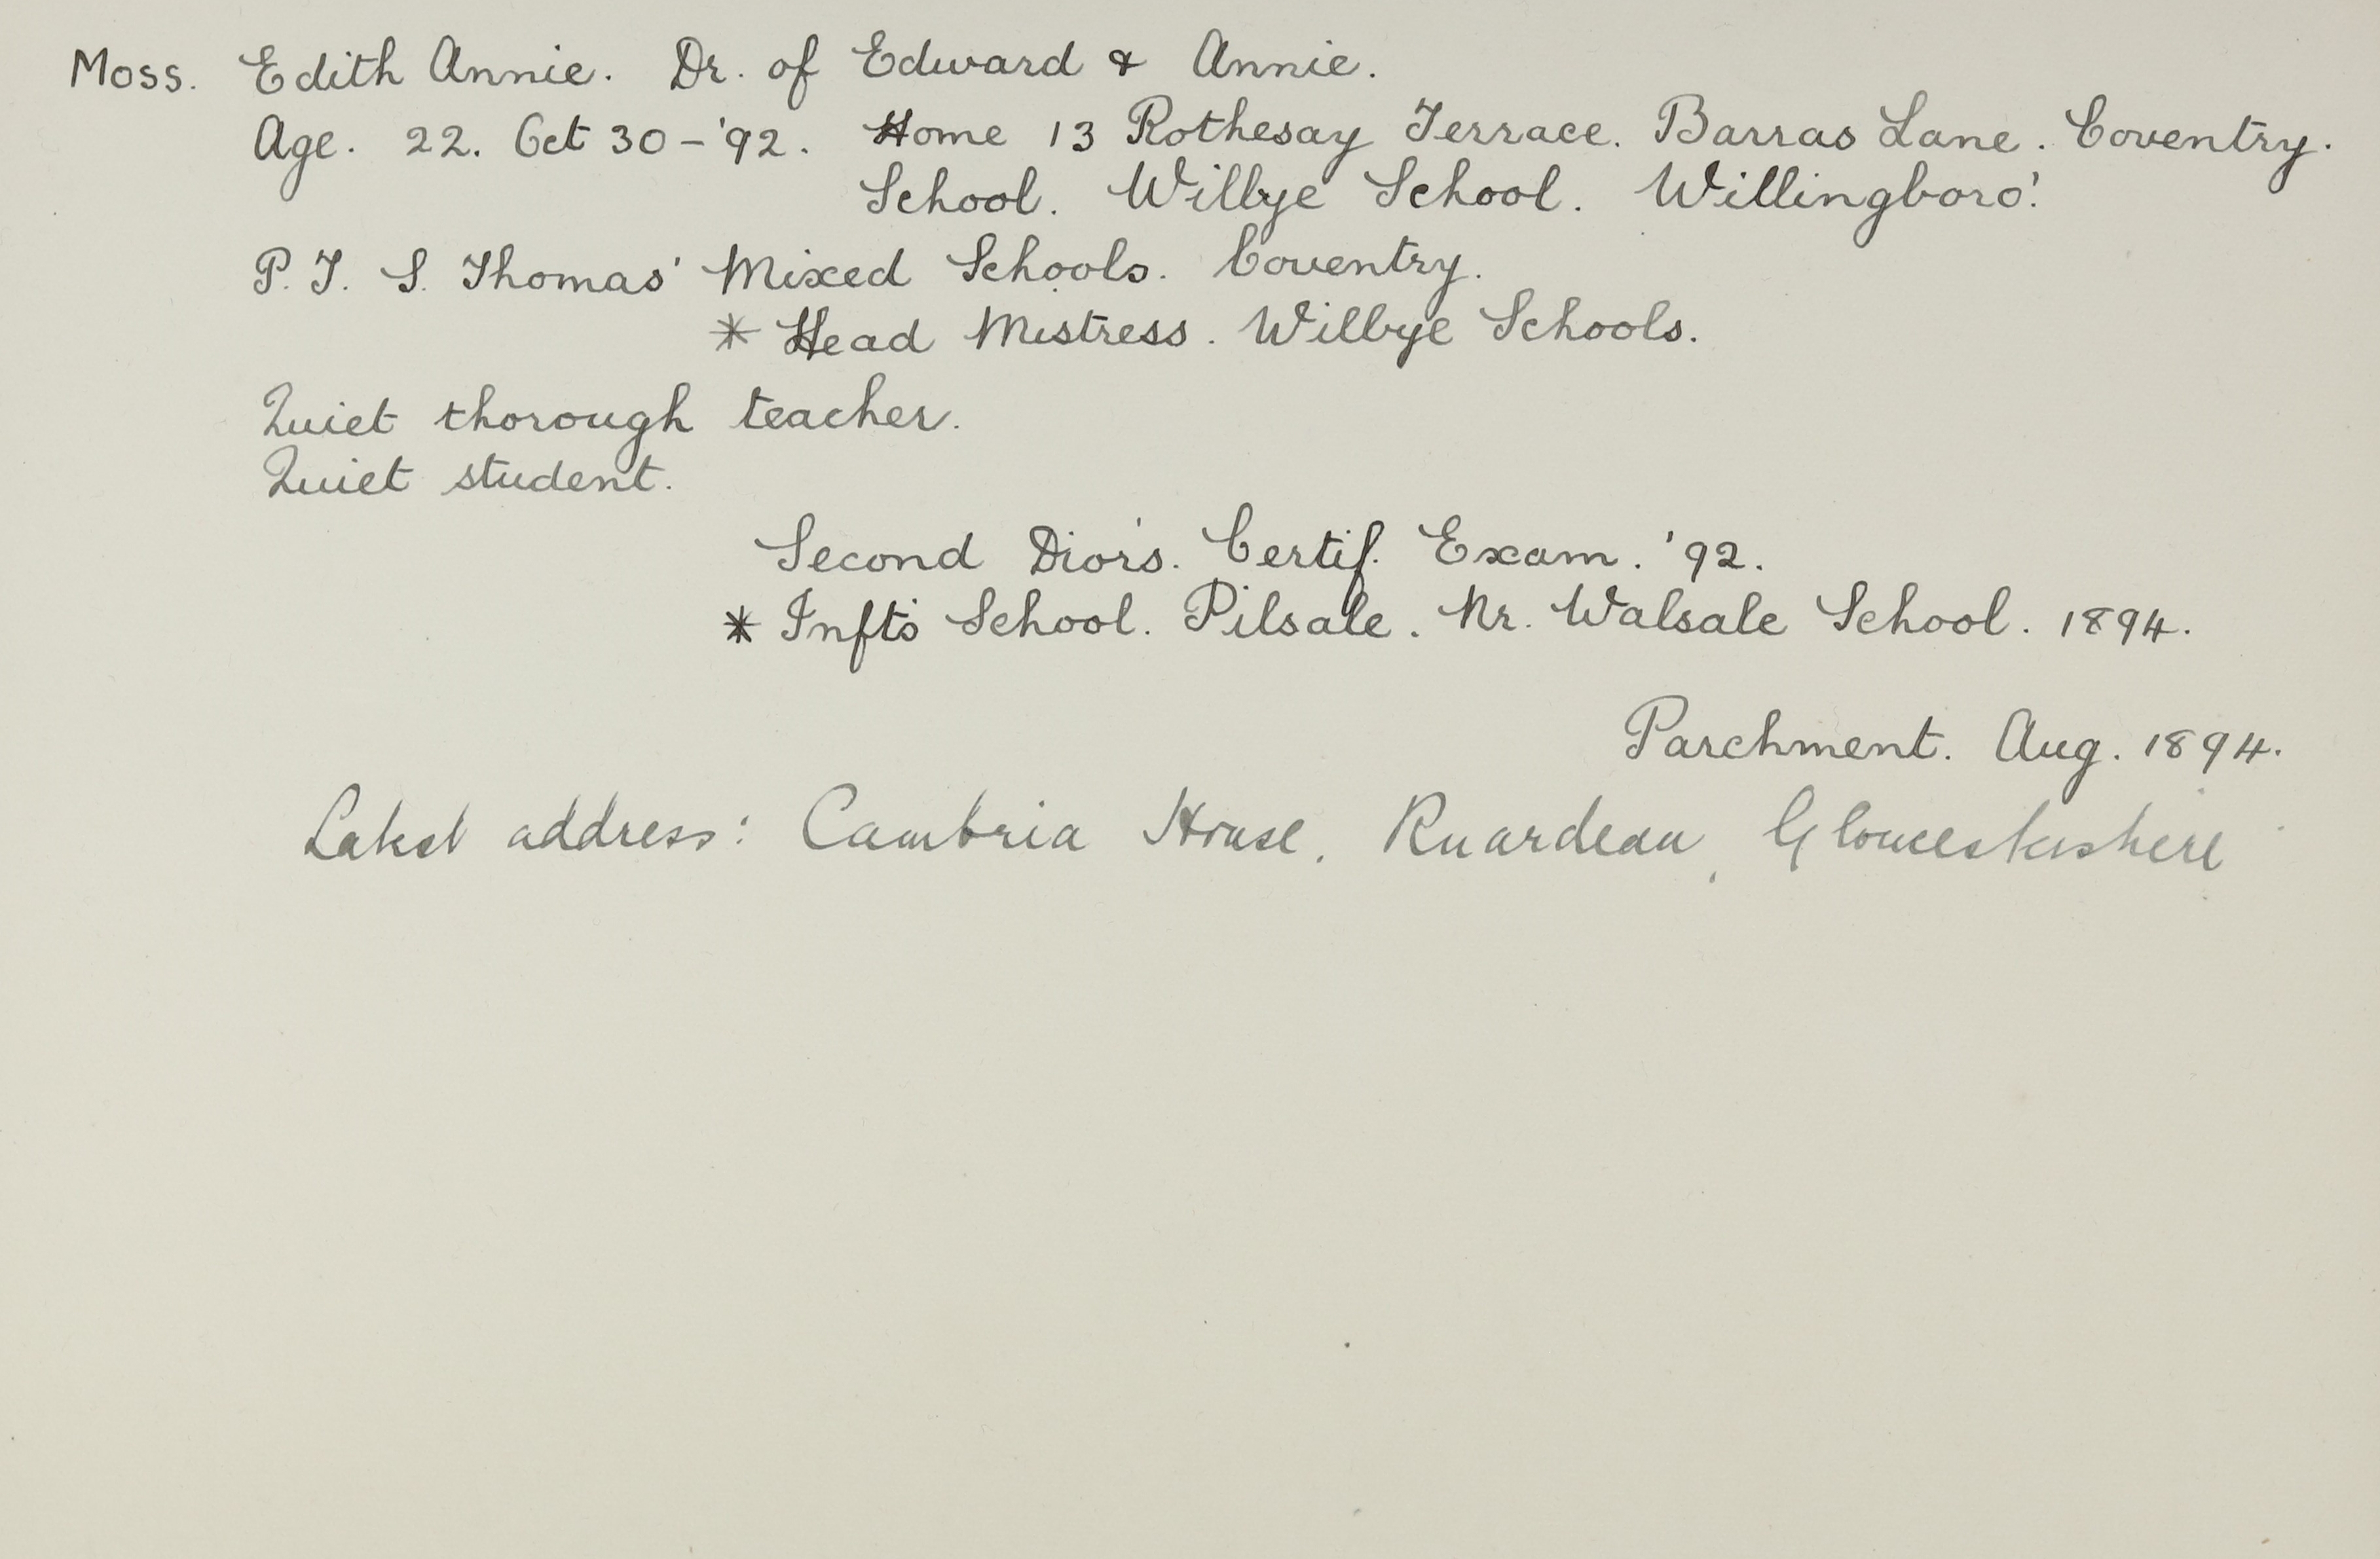 Moss. Edith Annie. Dr. of Edward & Annie.
Age. 22. Oct 30 - '92. Home 13 Rothesay Terrace. Barras Lane. Coventry.
School. Willbye School. Willingboro'.
P.T. S. Thomas' Mixed Schools. Coventry.
* Head Mistress. Wilbye Schools.
Quiet thorough teacher.
Quiet student.
Second Divis. Certif. Exam. '92.
* Infts School. Pilsale. Nr. Walsale School. 1894.
Parchment. Aug. 1894.
Latest address: Cambria House, Ruardean, Gloucestershire